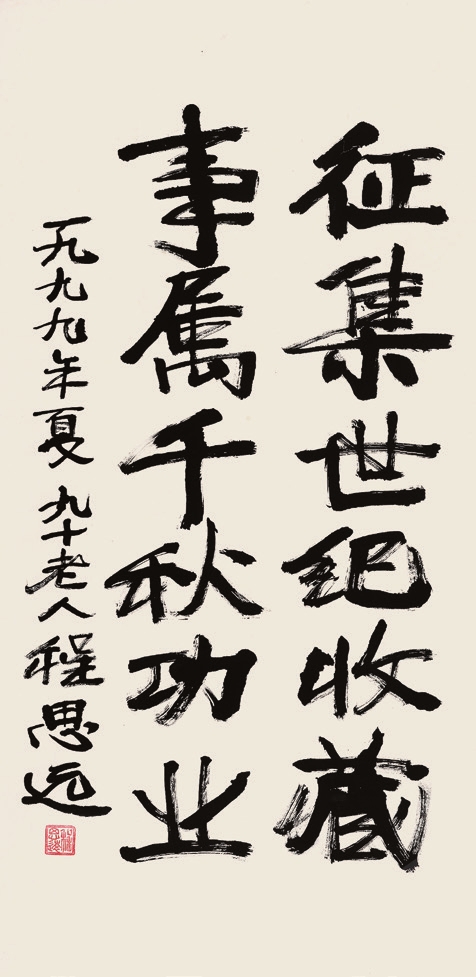 征集世纪收藏
事属千秋功业
一九九九年夏 九十老人程思远